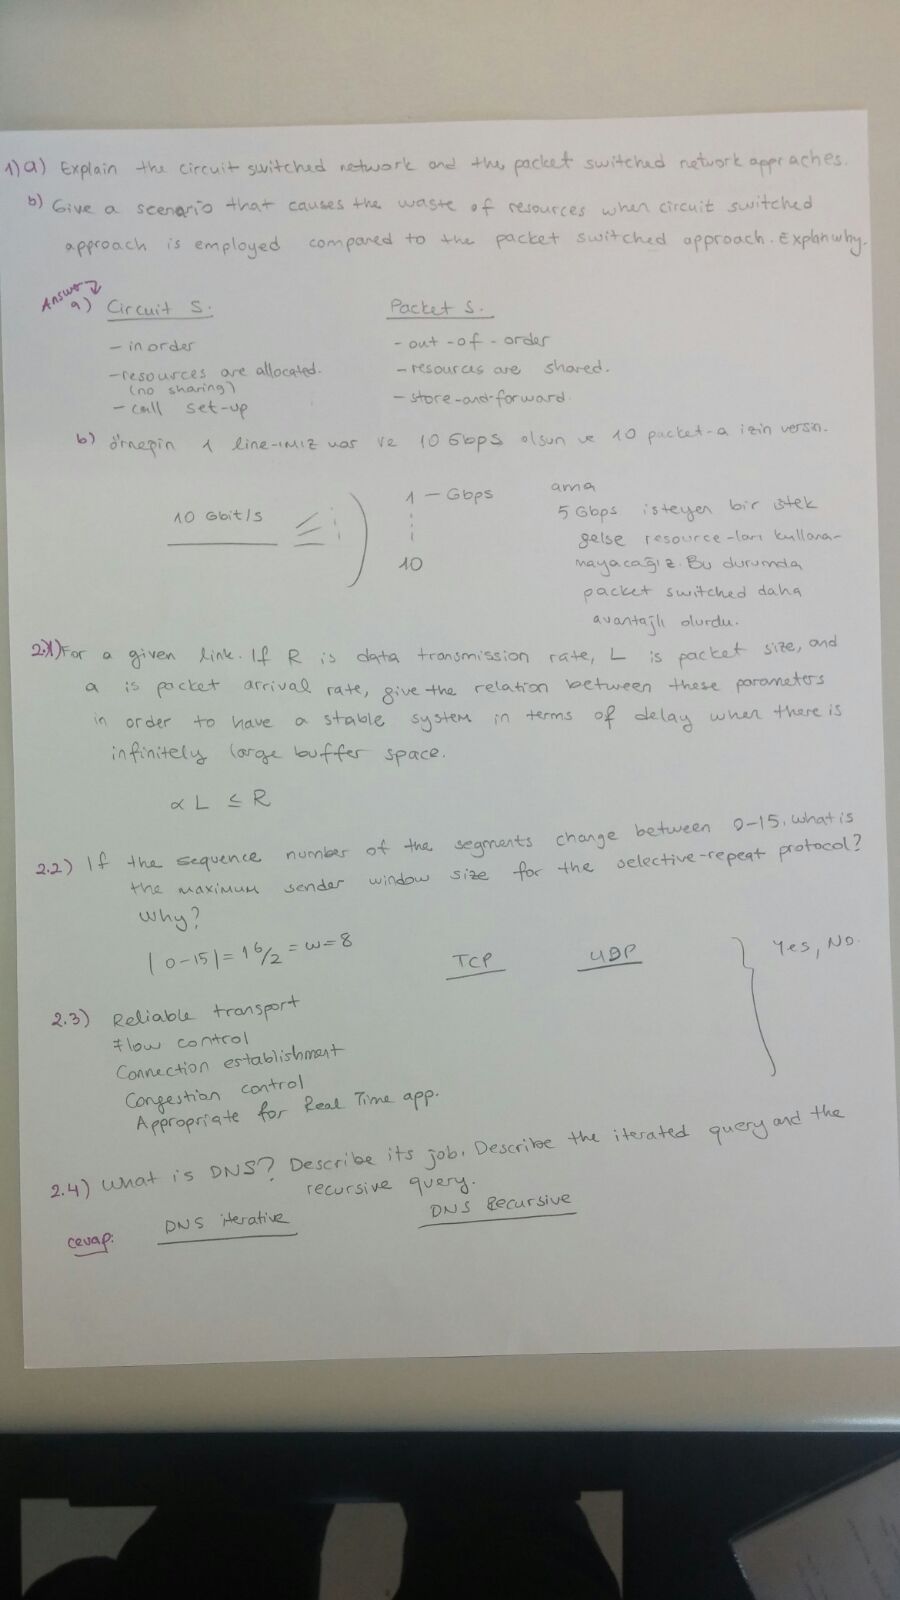 1) a) Explain the circuit switched network and the packet switched network appraches.
b) Give a scenario that causes the waste of resources when circuit switched
approach is employed compared to the packet switched approach. Explain why.
Answer
a) Circuit S. Packet S.
- in order - out-of-order
- resources are allocated. - resources are shared.
(no sharing)
- call set-up - store-and-forward.
b) örneğin 1 line-ımız var ve 10 Gbps olsun ve 10 packet-a izin versin.
10 Gbit/s 1 - Gbps ama
5 Gbps isteyen bir istek
gelse resource-ları kullana-
10 mayacağız. Bu durumda
packet switched daha
avantajlı olurdu.
2.1) For a given link. If R is data transmission rate, L is packet size, and
a is packet arrival rate, give the relation between these parameters
in order to have a stable system in terms of delay when there is
infinitely large buffer space.
∝ L ≤ R
2.2) If the sequence number of the segments change between 0-15, what is
the maximum sender window size for the selective-repeat protocol?
Why?
| 0-15| = 16/2 = w=8
TCP UDP Yes, No.
2.3) Reliable transport
Flow control
Connection establishment
Congestion control
Appropriate for Real Time app.
2.4) What is DNS? Describe its job. Describe the iterated query and the
recursive query.
cevap: DNS iterative DNS Recursive